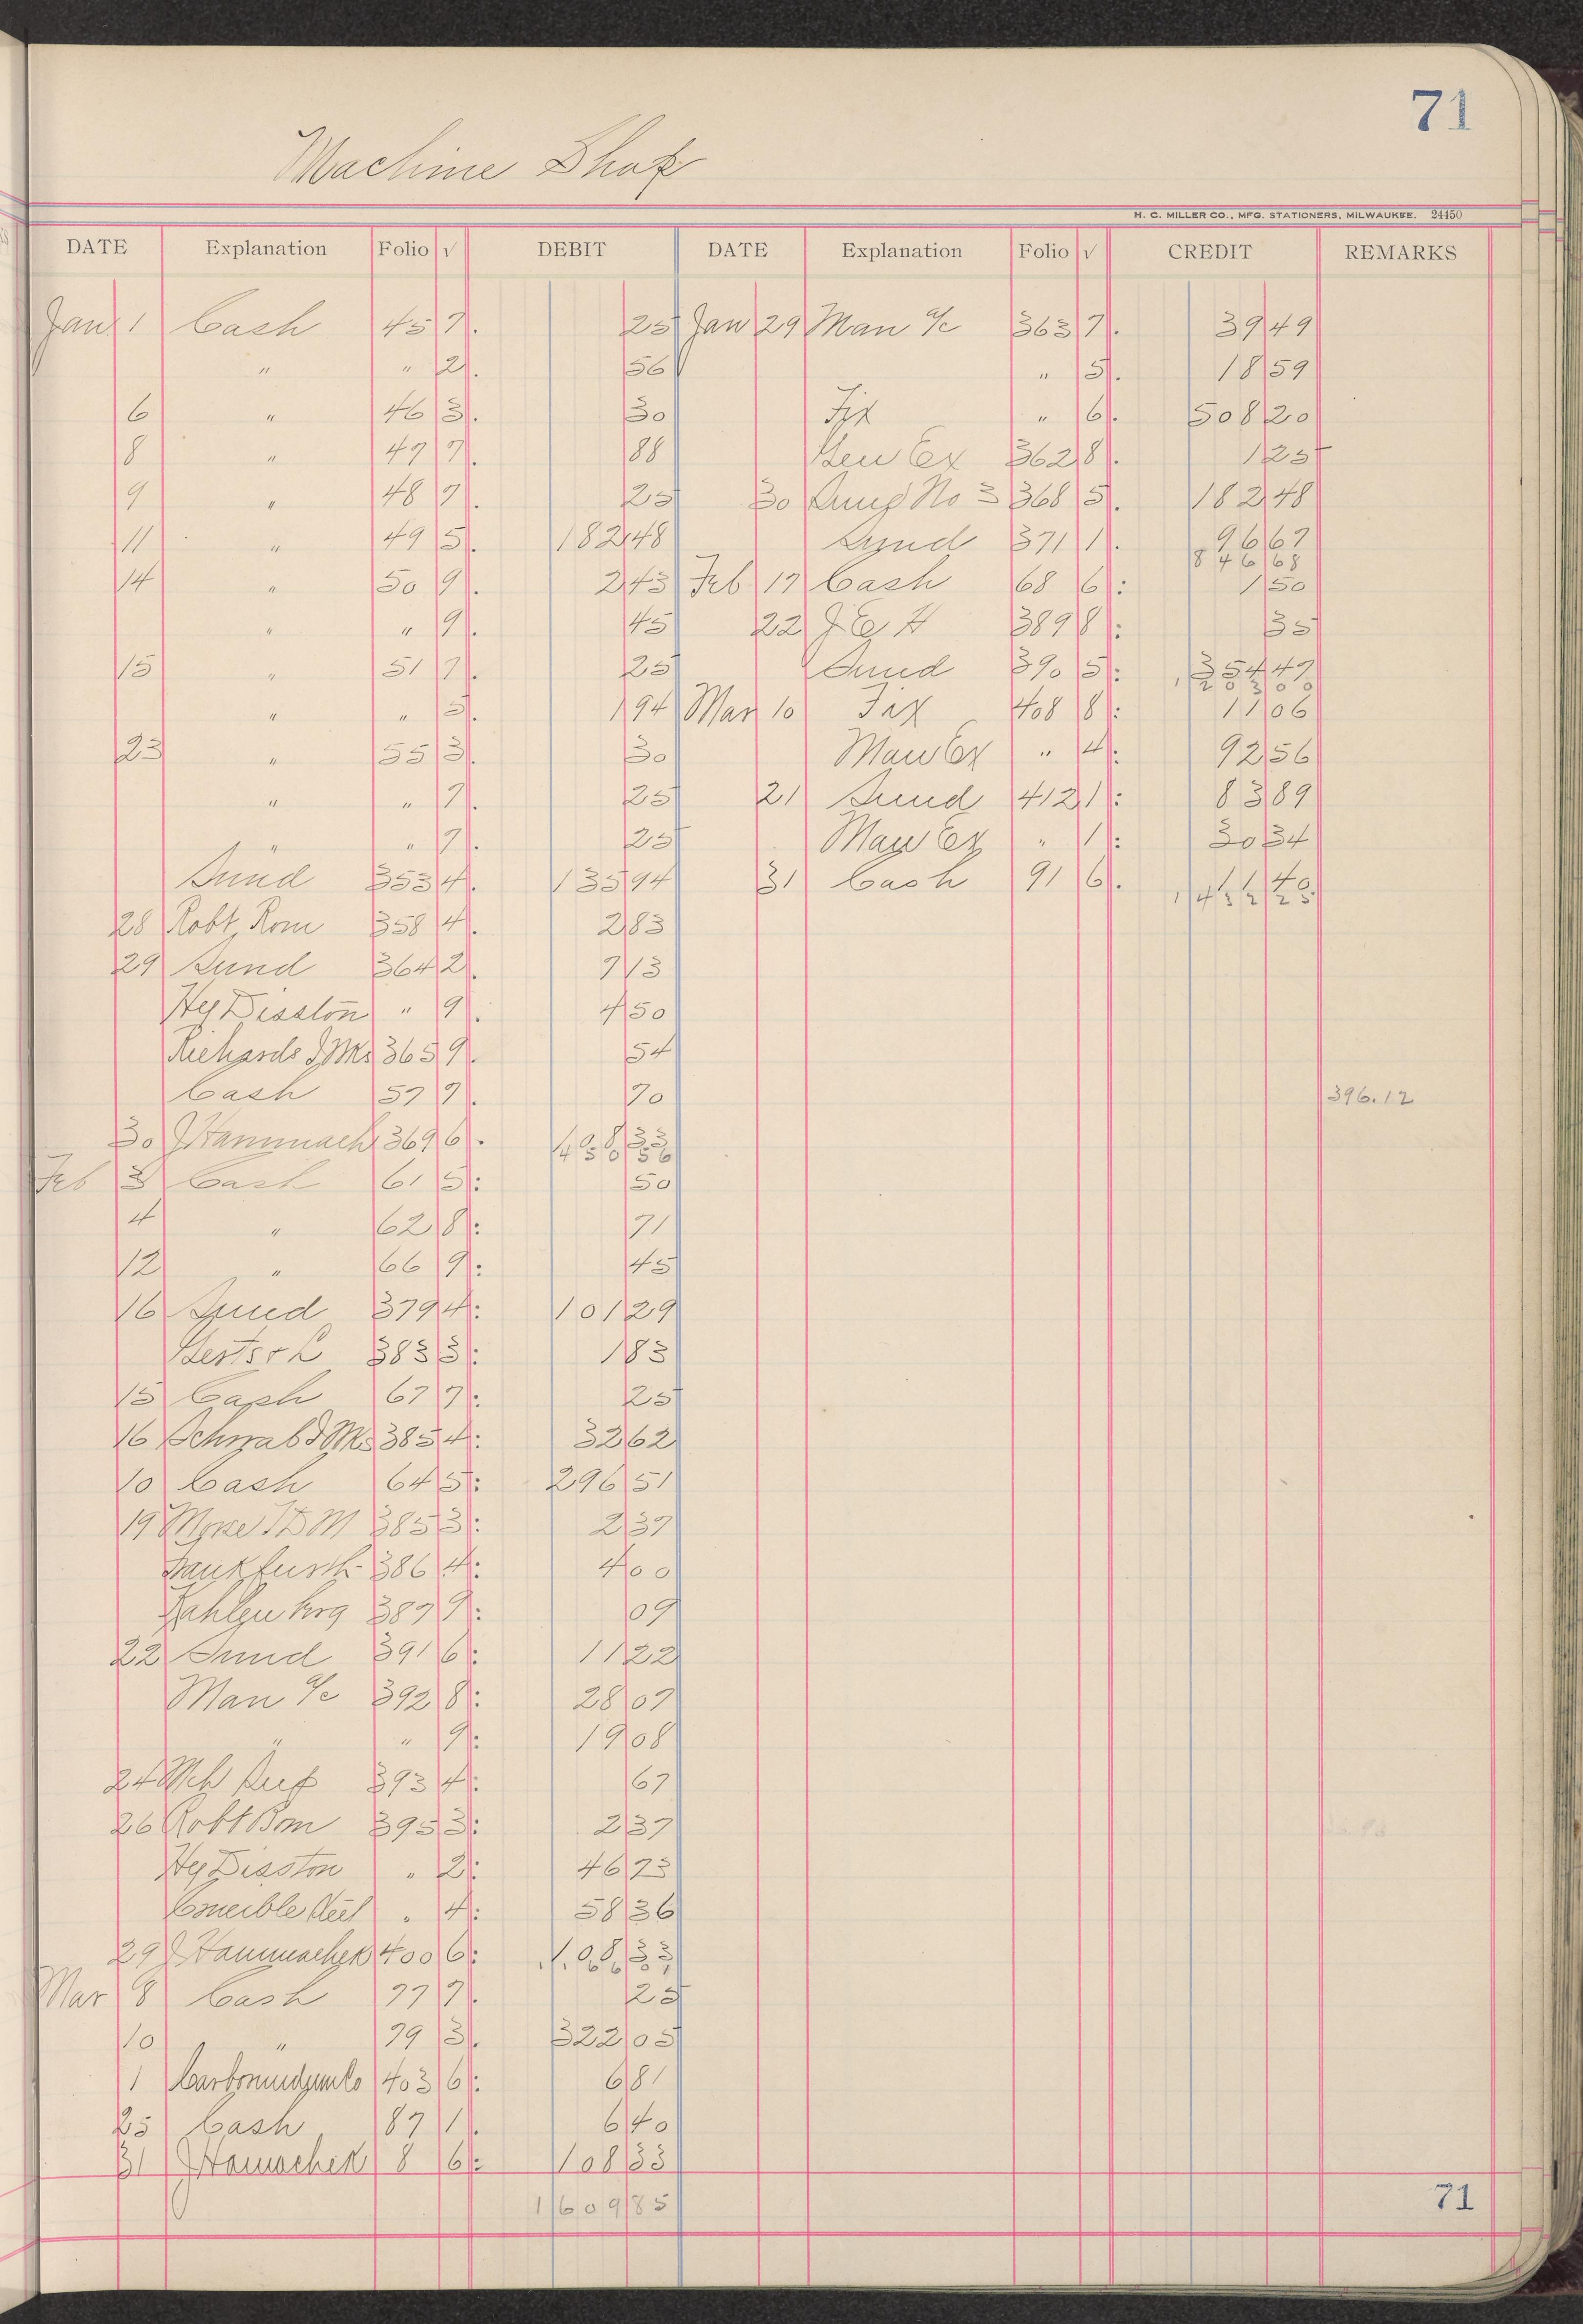 71
Machine Shop
H. C. MILLER CO., MFG. STATIONERS, MILWAUKEE. 24450
DATE Explanation Folio √ DEBIT DATE Explanation Folio √ CREDIT REMARKS
Jan 1 Cash 45 7. 25 Jan 29 Man a/c 363 7. 39 49
" " 2. 56 " 5. 18 59
6 " 46 3. 30 Fix " 6. 508 20
8 " 47 7. 88 Gen Ex 362 8. 1 25
9 " 48 7. 25 30 No 3 368 5. 182 48
11 " 49 5. 182 48 Sund 371 1. 96 67
846 68
14 " 50 9. 2 43 Feb 17 Cash 68 6: 1 50
" " 9. 45 22 J E H 389 8: 35
15 " 51 7. 25 Sund 390 5: 354 47
1203 00
" " 5. 1 94 Mar 10 Fix 408 8: 11 06
23 " 55 3. 30 Man Ex " 4: 92 56
" " 7. 25 21 Sund 412 1: 83 89
" " 7. 25 Man Ex " 1: 30 34
Sund 353 4. 135 94 31 Cash 91 6. 1 40
1422 25
28 Robt Rom 358 4. 2 83
29 Sund 364 2. 7 13
Hy Disston " 9. 4 50
Richards 365 9. 54
Cash 57 7. 70 396.12
30 J Hammach 369 6. 108 33
450 56
Feb 3 Cash 61 5: 50
4 " 62 8: 71
12 " 66 9: 45
16 Sund 379 4: 101 29
383 3: 1 83
15 Cash 67 7: 25
16 Schwab 385 4: 32 62
10 Cash 64 5: 296 51
19 Morse T D M 385 3: 2 37
Frankfurth 386 4: 4 00
Kahlenberg 387 9: 09
22 Sund 391 6: 11 22
Man a/c 392 8: 28 07
" " 9: 19 08
24 Mch 393 4: 67
26 Robt Rom 395 3: 2 37
Hy Disston " 2: 46 73
Crucible Steel " 4: 58 36
29 J Hammachek 400 6: 108 33
Mar 8 Cash 77 7. 25
10 " 79 3. 322 05
1 Carborundum Co 403 6: 6 81
25 Cash 87 1. 6 40
31 J Hamachek 8 6: 108 33
1609 85
71